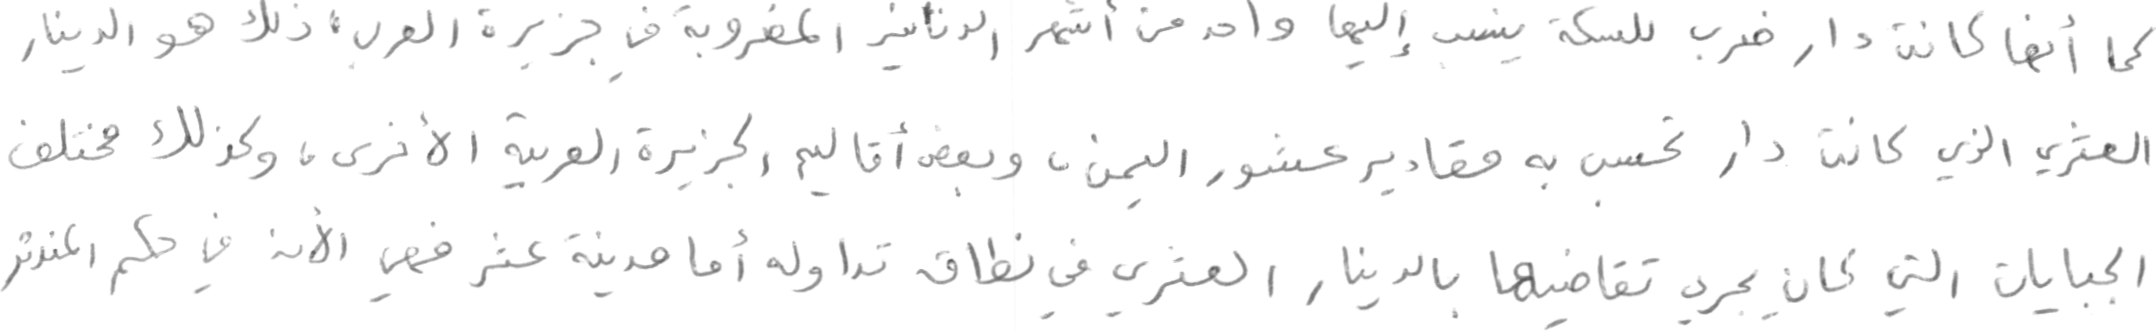 كما أنها كانت دار ضرب للسكة ينسب إليها واحد من أشهر الدنانير المضروبة في جزيرة العرب، ذلك هو الدينار
العثري الذي كانت دار تحسب به مقادير عشور اليمن، وبعض أقاليم الجزيرة العربية الأخرى، وكذلك مختلف
الجبايات التي كان يجري تقاضيها بالدينار العثري في نطاق تداوله أما مدينة عثر فهي الأن في حكم المندثر